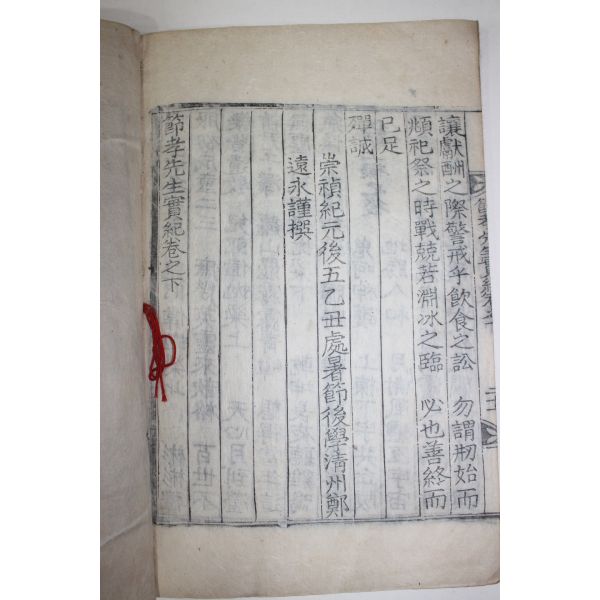 讓獻酬之際警戒乎飮食之訟 勿謂刱始而
順祀祭之時戰兢若淵冰之臨 必也善終而
已足
殫誠
崇禎紀元後五乙丑處暑節後學淸州鄭
遠永謹撰
節孝先生實紀卷之下